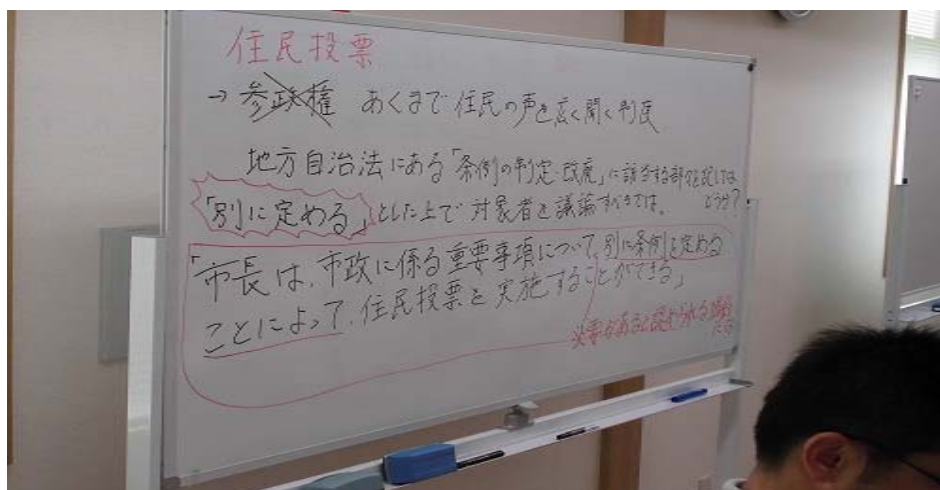 住民投票
→ 参政権 あくまで住民の声を広く聞く制度
地方自治法にある「条例の制定・改廃」に該当する部分を託しては どうか?
「別に定める」とした上で対象者を議論すべきでは。
「市長は、市政に係る重要事項について、別に条例を定める
ことによって、住民投票を実施することができる」
必要があると認められる場合